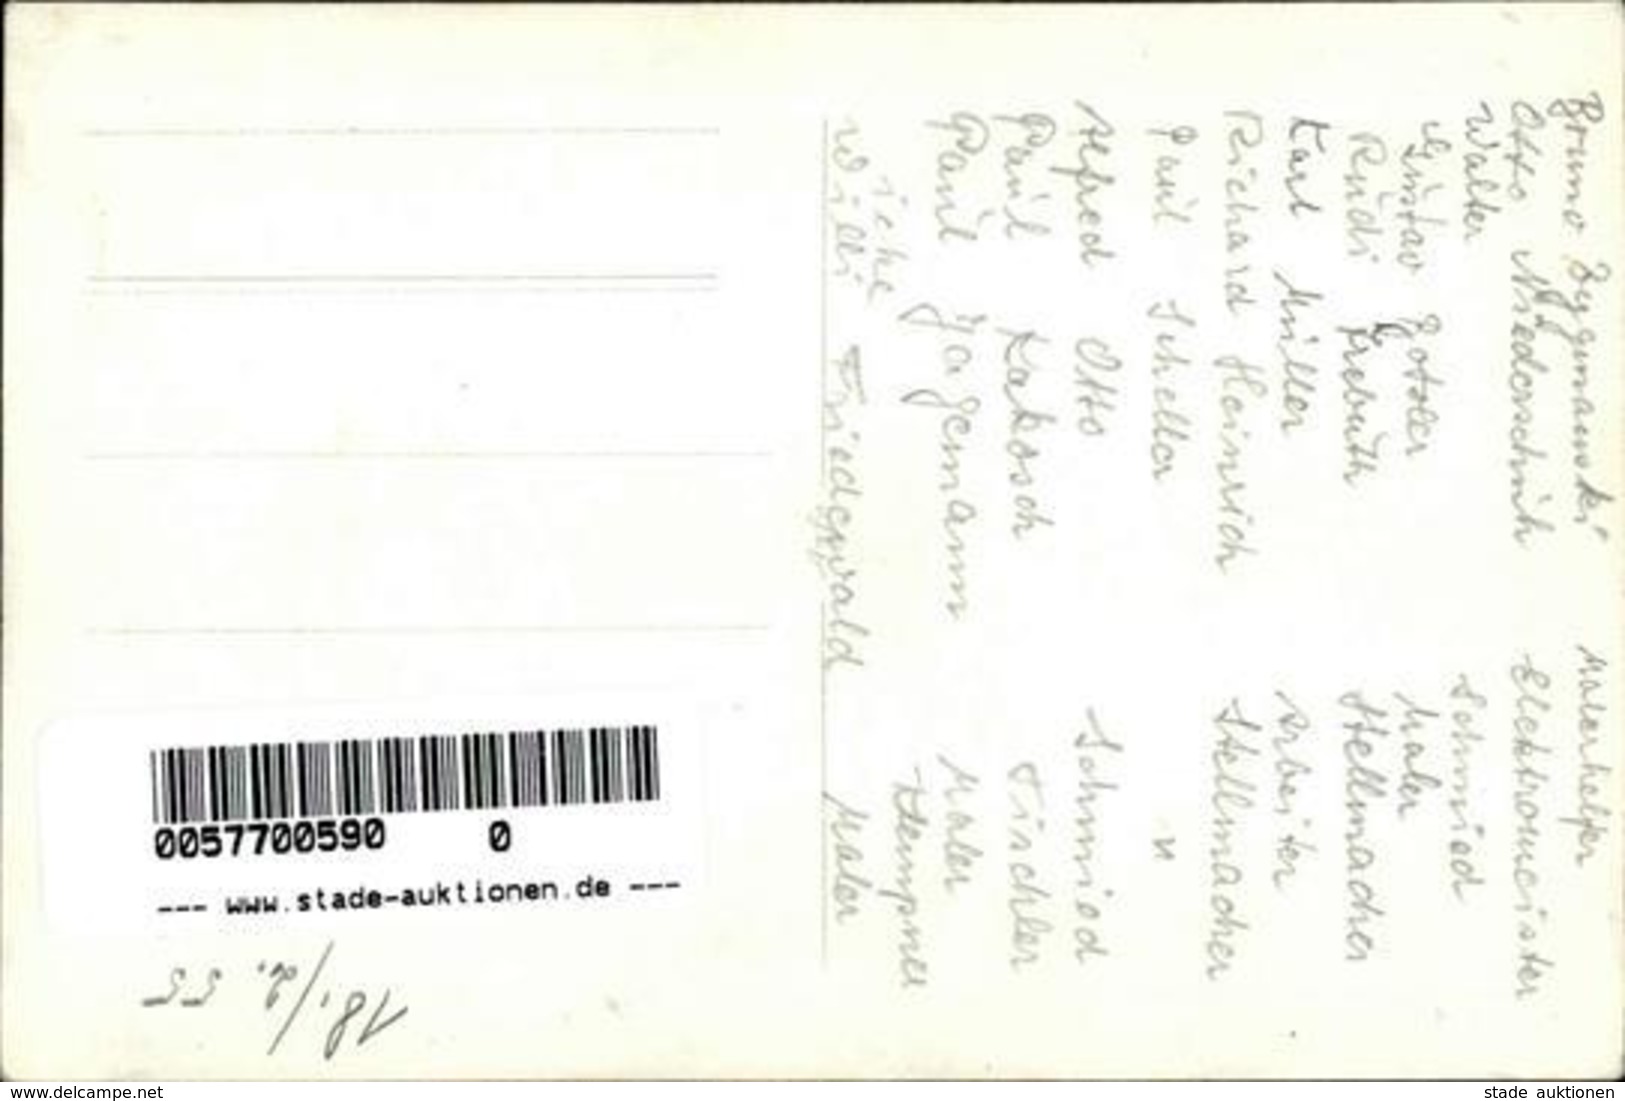 Bruno Zygmanski Malerhelfer
Otto Niederschuh Elektromeister
Walter Schmied
Gustav Gotzler Maler
Rudi Frebuth Stellmacher
Karl Müller Arbeiter
Richard Heinrich Stellmacher
Paul Scheller "
Alfred Otto Schmied
Paul Kakosch Tischler
Paul Jagemann Maler
iche Klempner
Willi Friedewald Maler
0057700590 0
--- www.stade-auktionen.de ---
18./2. 55
www.delcampe.net
stade auktionen